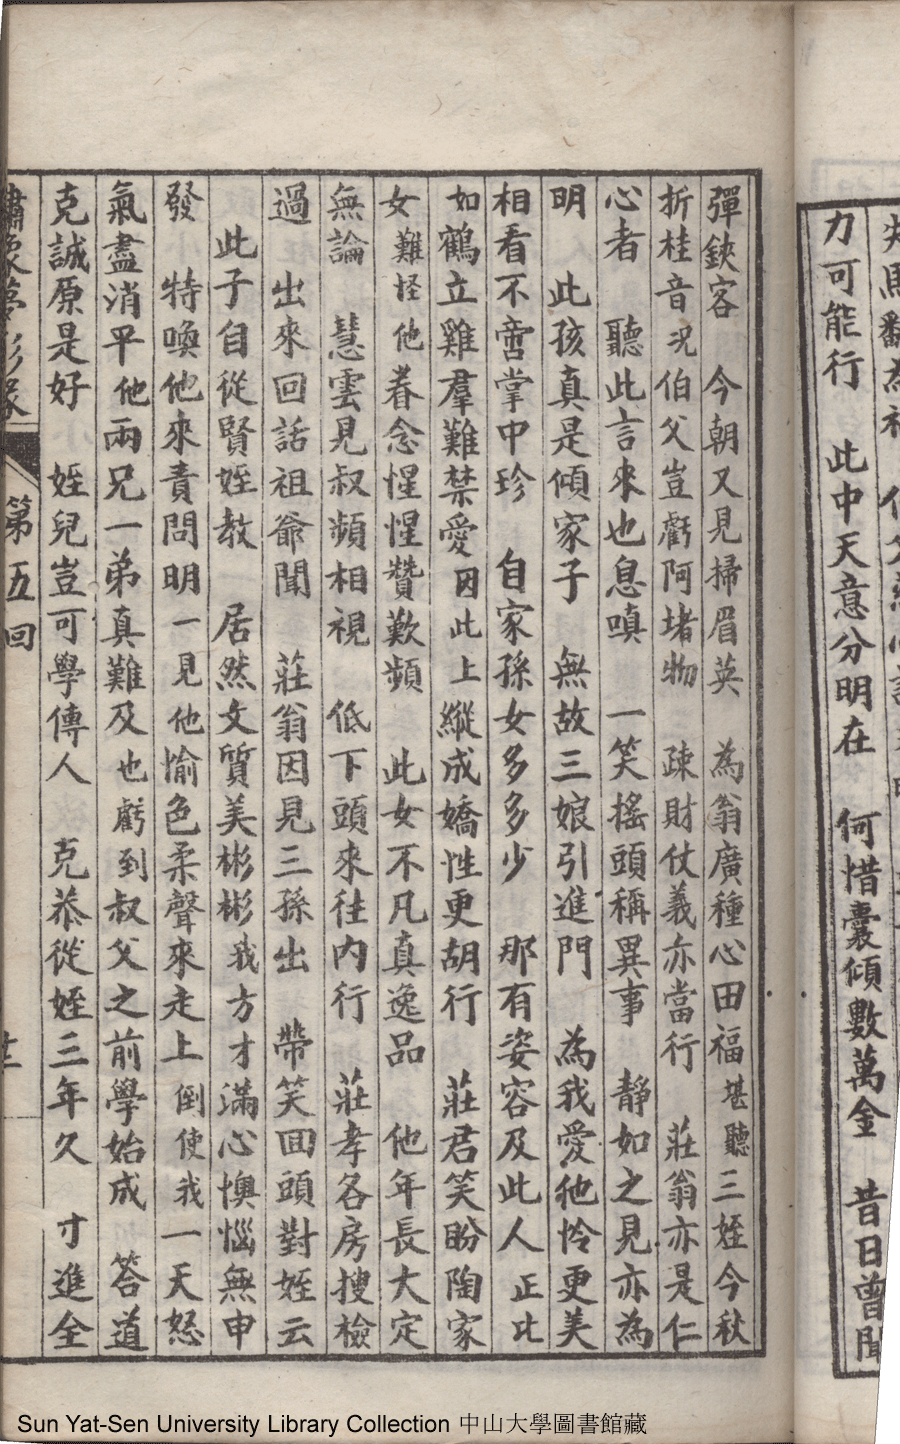 力可能行　此中天意分明在　何惜囊傾數萬金　昔日曾聞
彈鋏客　今朝又見掃眉英　為翁廣種心田福堪聽三姪今秋
折桂音況伯父豈虧阿堵物　疎財仗義亦當行　莊翁亦是仁
心者　聽此言來也息嗔　一笑搖頭稱異事　靜如之見亦為
明　此孩真是傾家子　無故三娘引進門　為我愛他怜更美
相看不啻掌中珍　自家孫女多多少　那有姿容及此人　正比
如鶴立雞羣難禁愛因此上縱成嬌性更胡行　莊君笑盼陶家
女難怪他眷念惺惺贊歎頻　此女不凡真逸品　他年長大定
無論　慧雲見叔頻相視　低下頭來往內行　莊孝各房搜檢
過　出來回話祖爺聞　莊翁因見三孫出　帶笑回頭對姪云
此子自從賢姪教　居然文質美彬彬我方才滿心懊惱無申
發　特喚他來責問明一見他愉色柔聲來走上倒使我一天怒
氣盡消平他兩兄一弟真難及也虧到叔父之前學始成　答道
克誠原是好　姪兒豈可學傳人　克恭從姪三年久　寸進全
繡像夢影緣　第五回